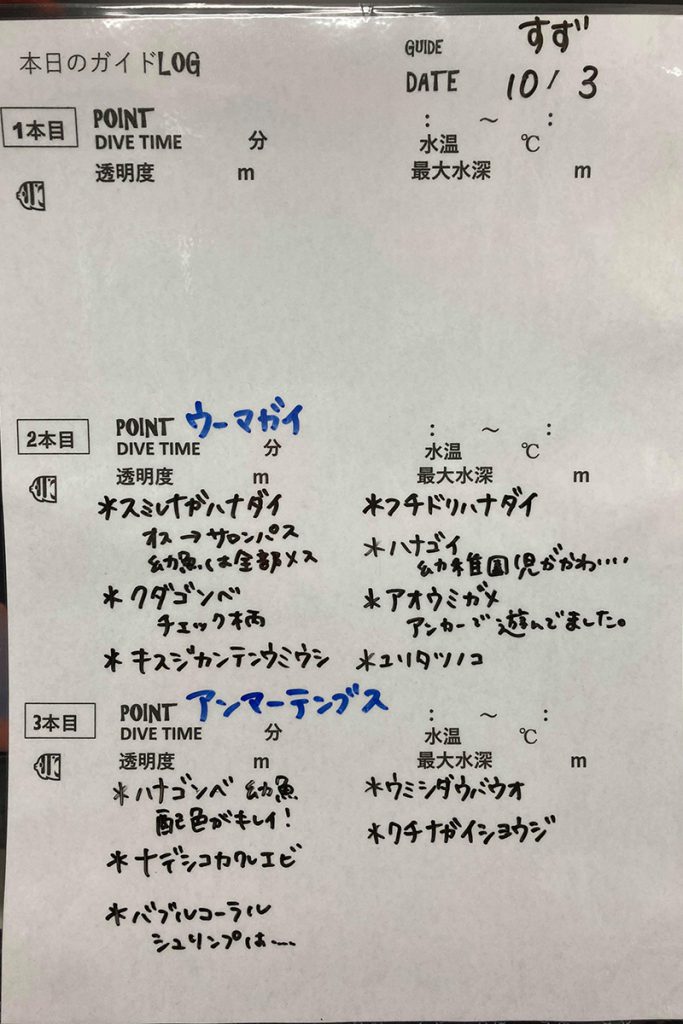 本日のガイドLOG
GUIDE すず
DATE 10/3
1本目 POINT
DIVE TIME 分
: ～ :
水温 ℃
透明度 m
最大水深 m
2本目 POINT ウーマガイ
DIVE TIME 分
: ～ :
水温 ℃
透明度 m
最大水深 m
*スミレナガハナダイ
オス→サロンパス
幼魚は全部メス
*クダゴンベ
チェック柄
*キスジカンテンウミウシ
*フチドリハナダイ
*ハナゴイ
幼稚園児がかわ‥‥
*アオウミガメ
アンカーで遊んでました。
*ユリタツノコ
3本目 POINT アンマーテンブス
DIVE TIME 分
: ～ :
水温 ℃
透明度 m
最大水深 m
*ハナゴンベ 幼魚
配色がキレイ!
*ナデシコカクレエビ
*バブルコーラル
シュリンプは‥‥
*ウミシダウバウオ
*クチナガイシヨウジ